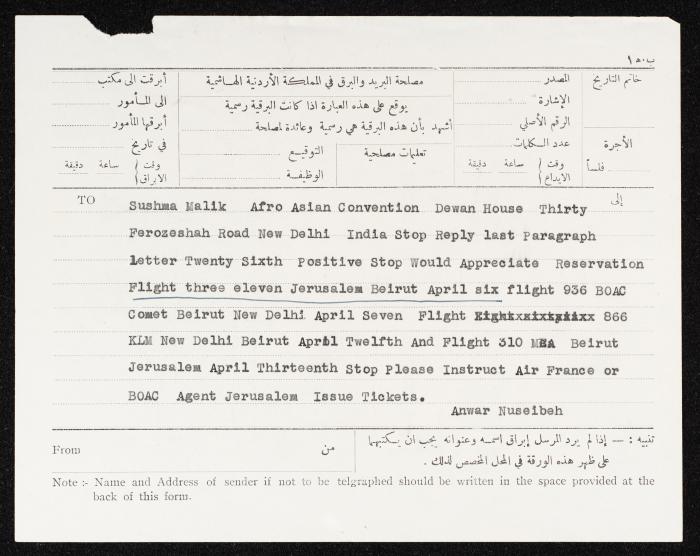 ب.ه ١
خاتم التاريخ
المصدر
مصلحة البريد والبرق في المملكة الأردنية الهاشمية
أبرقت الى مكتب
الإشارة
يوقع على هذه العبارة اذا كانت البرقية رسمية
الى المأمور
الرقم الأصلي
أشهد بأن هذه البرقية هي رسمية وعائدة لمصلحة
أبرقها المأمور
الأجرة
عدد الكلمات
تعليمات مصلحية
التوقيع
في تاريخ
فلساً
وقت الايداع } ساعة دقيقة
الوظيفة
وقت الابراق } ساعة دقيقة
TO
إلى
Sushma Malik Afro Asian Convention Dewan House Thirty
Ferozeshah Road New Delhi India Stop Reply last Paragraph
letter Twenty Sixth Positive Stop Would Appreciate Reservation
Flight three eleven Jerusalem Beirut April six flight 936 BOAC
Comet Beirut New Delhi April Seven Flight 866
KLM New Delhi Beirut April Twelfth And Flight 310 MEA Beirut
Jerusalem April Thirteenth Stop Please Instruct Air France or
BOAC Agent Jerusalem Issue Tickets.
Anwar Nuseibeh
From
من
تنبيه : — إذا لم يرد المرسل إبراق اسمه وعنوانه يجب ان يكتبهما
على ظهر هذه الورقة في المحل المخصص لذلك .
Note :- Name and Address of sender if not to be telgraphed should be written in the space provided at the
back of this form.